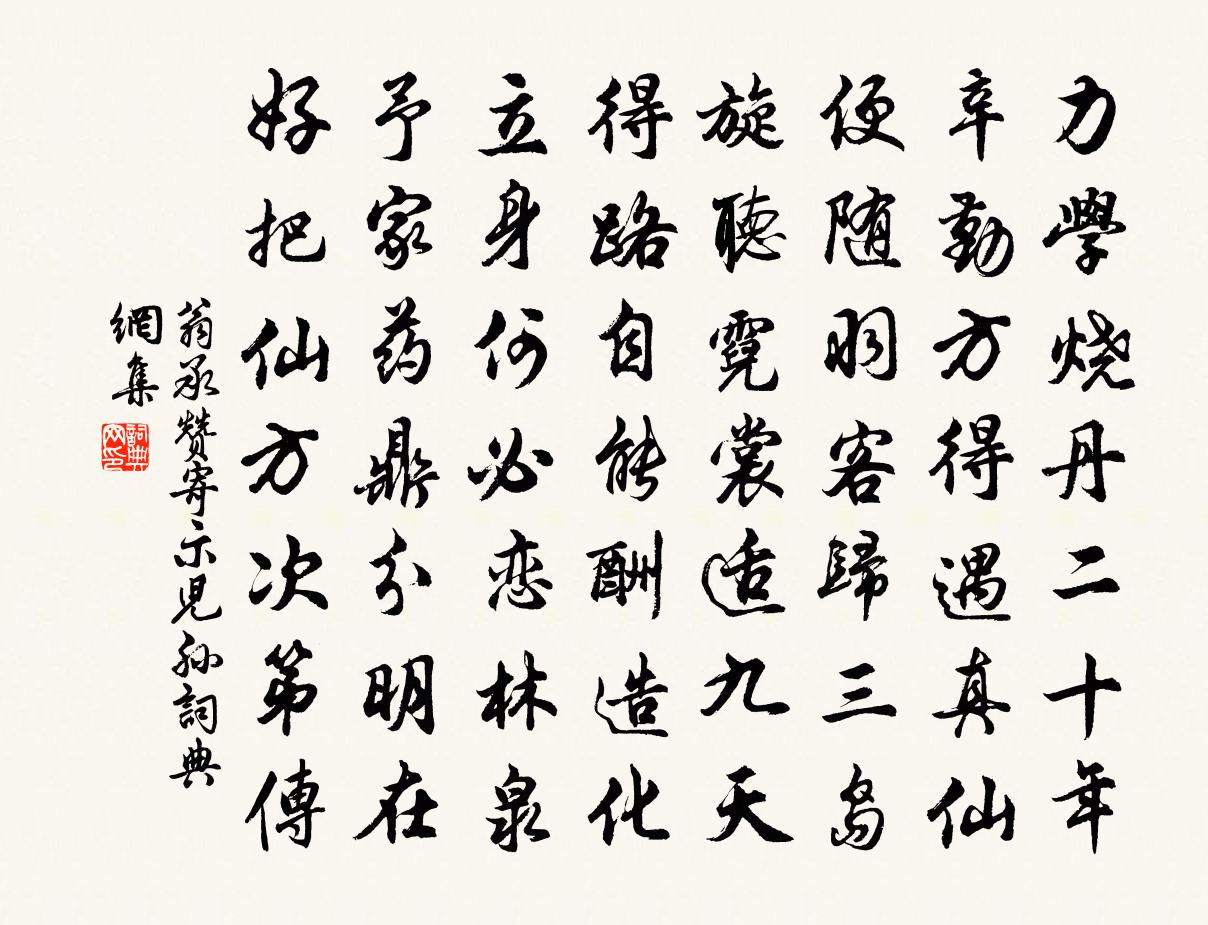 力學燒丹二十年
辛勤方得遇真仙
便随羽客歸三島
旋聽霓裳适九天
得路自能酬造化
立身何必恋林泉
予家药鼎分明在
好把仙方次第傳
翁承赞寄示兒孙詞典
網集
詞典网印